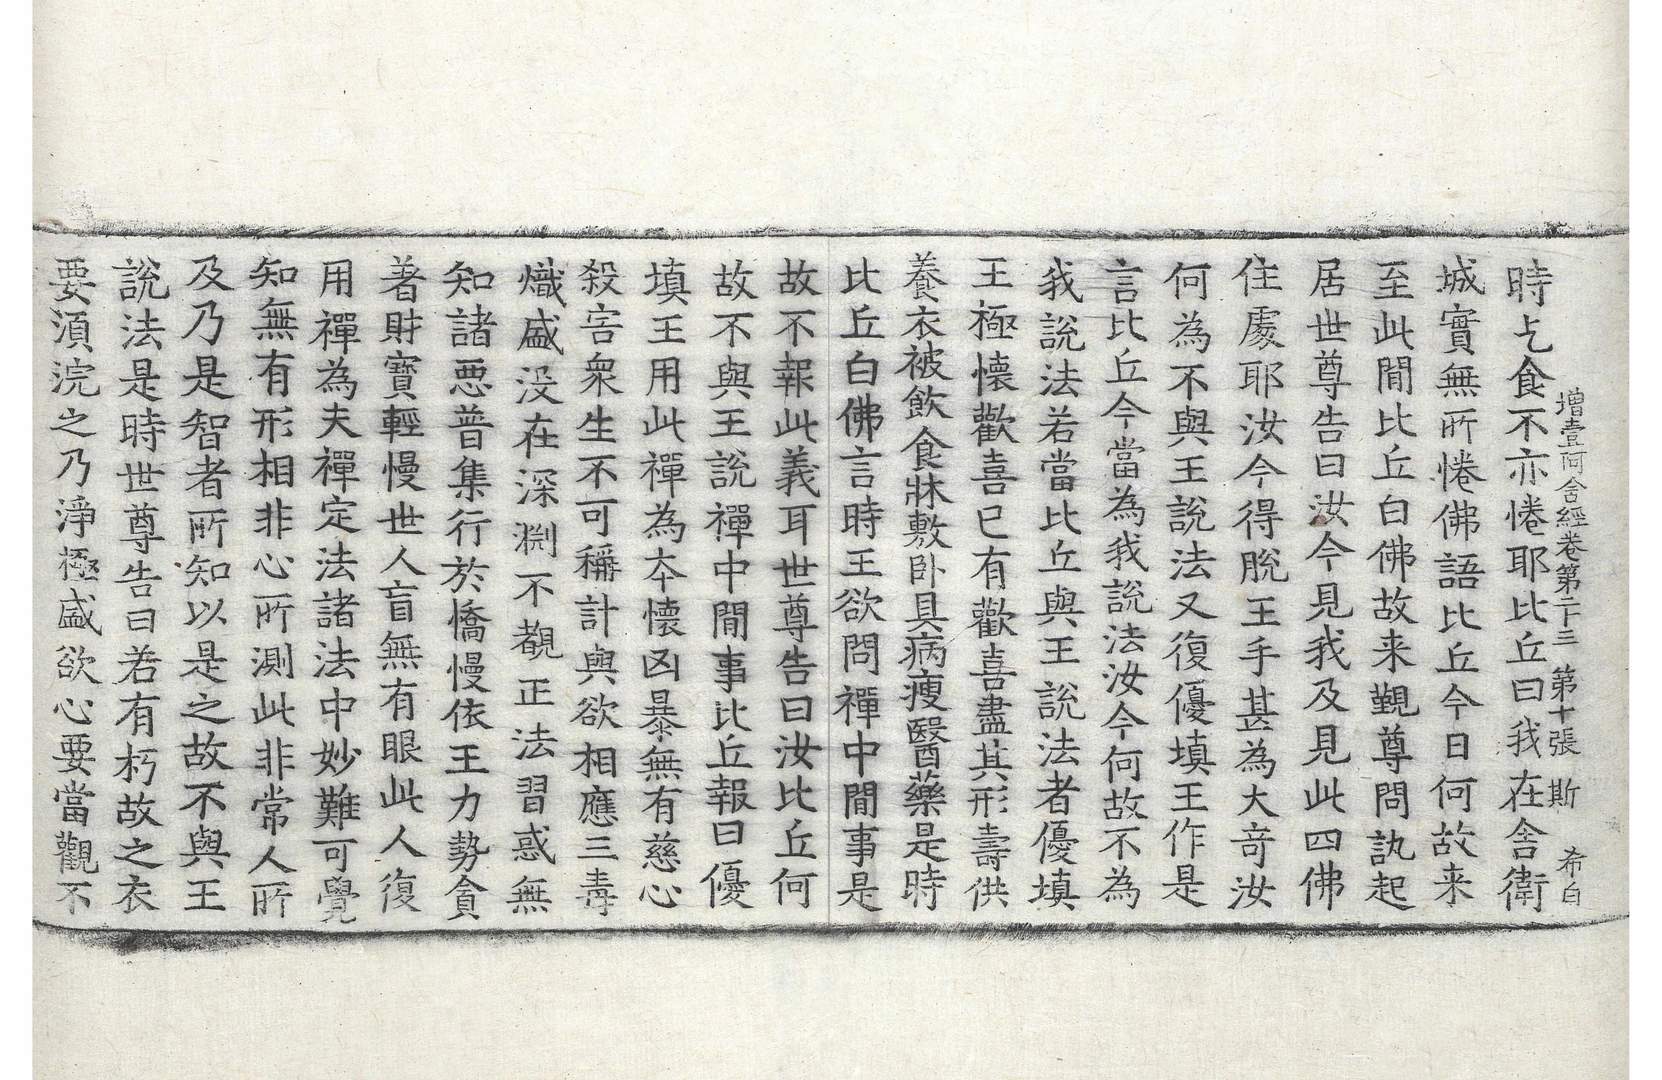 增壹阿含經卷第二十三 第十張 斯 希白
時乞食不亦惓耶比丘曰我在舍衛
城實無所惓佛語比丘今日何故来
至此閒比丘白佛故来覲尊問訊起
居世尊告曰汝今見我及見此四佛
住處耶汝今得脫王手甚為大竒汝
何為不與王說法又復優填王作是
言比丘今當為我說法汝今何故不為
我說法若當比丘與王說法者優填
王極懷歡喜已有歡喜盡其形壽供
養衣被飲食牀敷卧具病瘦醫藥是時
比丘白佛言時王欲問禪中閒事是
故不報此義耳世尊告曰汝比丘何
故不與王說禪中閒事比丘報曰優
填王用此禪為夲懷凶暴無有慈心
殺害衆生不可稱計與欲相應三毒
熾盛没在深渕不覩正法習惑無
知諸悪普集行於憍慢依王力勢貪
著財寶輕慢世人盲無有眼此人復
用禪為夫禪定法諸法中妙難可覺
知無有形相非心所測此非常人所
及乃是智者所知以是之故不與王
說法是時世尊告曰若有朽故之衣
要須浣之乃淨極盛欲心要當觀不